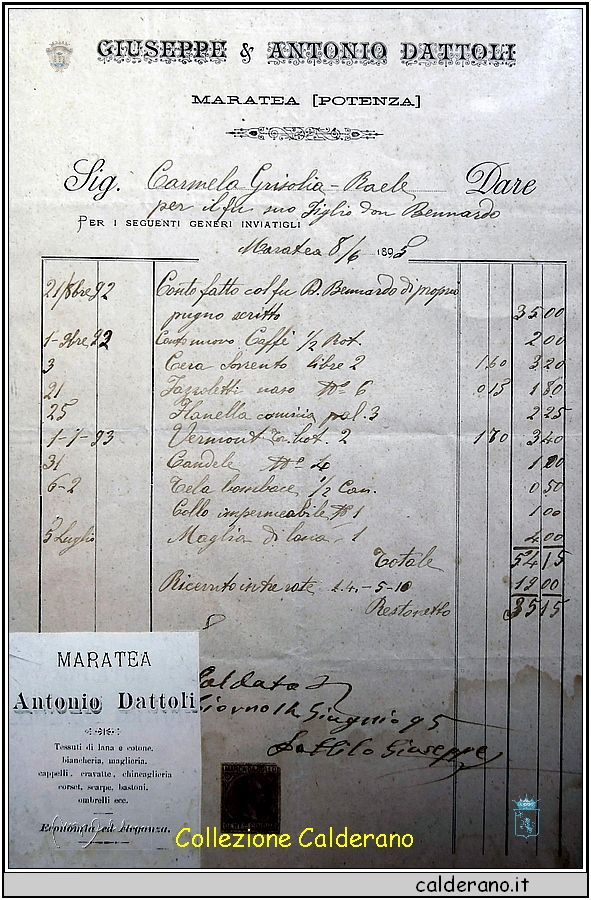 GIUSEPPE & ANTONIO DATTOLI
MARATEA [POTENZA]
Sig. Carmela Grisolia - Raele Dare
per il fu suo figlio don Bennardo
PER I SEGUENTI GENERI INVIATIGLI
Maratea 8/6 1895
21/8bre 92 Conto fatto col fu D. Bennardo di proprio
pugno scritto 35 00
1-9bre, 92 Conto nuovo Caffè 1/2 Rot. 2 00
3 Cera Sorrento libre 2 1 60 3 20
21 Fazzoletti naso No 6 0 15 1 80
25 Flanella camicia pal. 3 2 25
1-1-93 Vermont bot. 2 1 70 3 40
31 Candele No 4 1 00
6-2 Tela bombace 1/2 Can. 0 50
Collo impermeabile No 1 1 00
5 Luglio Maglia di lana 1 4 00
Totale 54 15
Ricevuto in tre rate L. 4-5-10 19 00
Resto netto 35 15
Saldata
Giorno 12 Giugnio 95
Dattilo Giuseppe
MARATEA
Antonio Dattoli
Tessuti di lana e cotone,
biancheria, maglieria,
cappelli, cravatte, chincaglieria
corset, scarpe, bastoni,
ombrelli ecc.
Economia ed eleganza.
Collezione Calderano
calderano.it